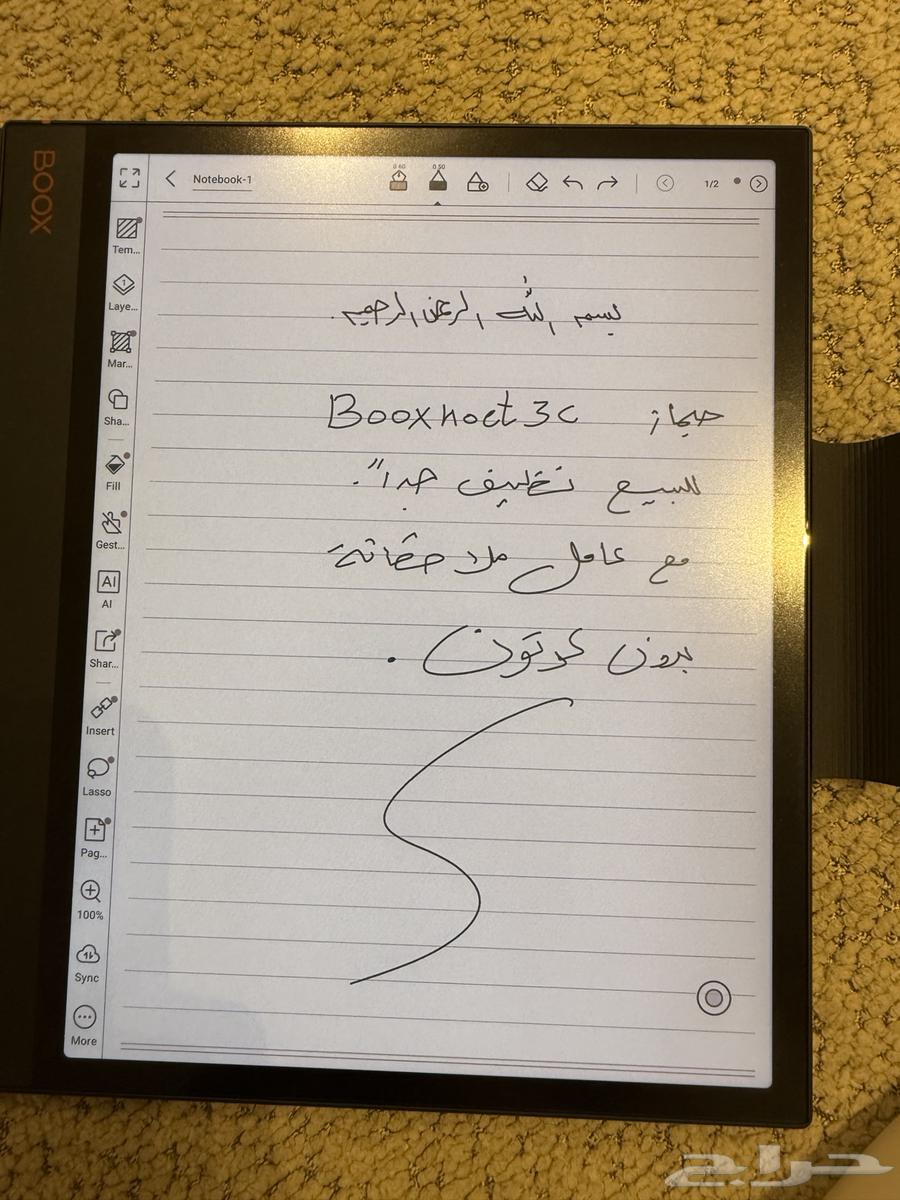 BOOX
Notebook-1
0.60
0.50
1/2
Tem...
Laye...
Mar...
Sha...
Fill
Gest...
AI
AI
Shar...
Insert
Lasso
Pag...
100%
Sync
More
بسم الله الرحمن الرحيم.
جهاز Boox noet 3c
للبيع نظيف جداً.
مع كامل ملاحظاته
بدون كرتون.
حراج